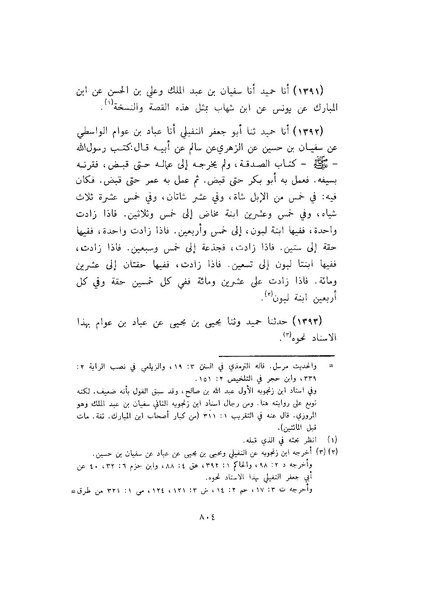 (١٣٩١) أنا حميد أنا سفيان بن عبد الملك وعلي بن الحسن عن ابن
المبارك عن يونس عن ابن شهاب بمثل هذه القصة والنسخة(١).
(١٣٩٢) أنا حميد ثنا أبو جعفر النفيلي أنا عباد بن عوام الواسطي
عن سفيان بن حسين عن الزهري عن سالم عن أبيه قال: كتب رسول الله
- ﷺ - كتاب الصدقة، ولم يخرجه إلى عماله حتى قبض، فقرنه
بسيفه. فعمل به أبو بكر حتى قبض. ثم عمل به عمر حتى قبض. فكان
فيه: في خمس من الإبل شاة، وفي عشر شاتان، وفي خمس عشرة ثلاث
شياه، وفي خمس وعشرين ابنة مخاض إلى خمس وثلاثين. فاذا زادت
واحدة، ففيها ابنة لبون، إلى خمس وأربعين. فاذا زادت واحدة، ففيها
حقة إلى ستين. فاذا زادت، فجذعة إلى خمس وسبعين. فاذا زادت،
ففيها ابنتا لبون إلى تسعين. فاذا زادت، ففيها حقتان إلى عشرين
ومائة. فاذا زادت على عشرين ومائة ففي كل خمسين حقة وفي كل
أربعين ابنة لبون(٢).
(١٣٩٣) حدثنا حميد وثنا يحيى بن يحيى عن عباد بن عوام بهذا
الاسناد نحوه(٣).
= والحديث مرسل. قاله الترمذي في السنن ٣: ١٩، والزيلعي في نصب الراية ٢:
٣٣٩، وابن حجر في التلخيص ٢: ١٥١.
وفي اسناد ابن زنجويه الأول عبد الله بن صالح، وقد سبق القول بأنه ضعيف. لكنه
توبع على روايته هنا. ومن رجال اسناد ابن زنجويه الثاني سفيان بن عبد الملك وهو
المروزي. قال عنه في التقريب ١: ٣١١ (من كبار أصحاب ابن المبارك. ثقة. مات
قبل المائتين).
(١) انظر بحثه في الذي قبله.
(٢) (٣) أخرجه ابن زنجويه عن النفيلي ويحيى بن يحيى عن عباد عن سفيان بن حسين.
وأخرجه د ٢: ٩٨، والحاكم ١: ٣٩٢، هق ٤: ٨٨، وابن حزم ٦: ٣٢، ٤٠ عن
أبي جعفر النفيلي بهذا الاسناد نحوه.
وأخرجه ت ٣: ١٧، حم ٢: ١٤، ش ٣: ١٢١، ١٢٤، مي ١: ٣٢١ من طرق=
٨٠٤